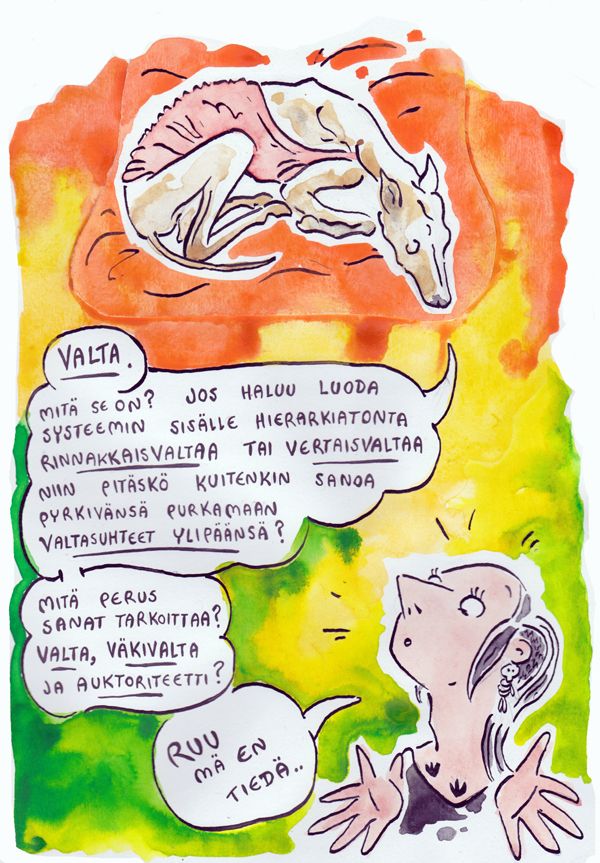 VALTA.
MITÄ SE ON? JOS HALUU LUODA
SYSTEEMIN SISÄLLE HIERARKIATONTA
RINNAKKAISVALTAA TAI VERTAISVALTAA
NIIN PITÄSKÖ KUITENKIN SANOA
PYRKIVÄNSÄ PURKAMAAN
VALTASUHTEET YLIPÄÄNSÄ?
MITÄ PERUS
SANAT TARKOITTAA?
VALTA, VÄKIVALTA
JA AUKTORITEETTI?
RUU
MÄ EN
TIEDÄ..